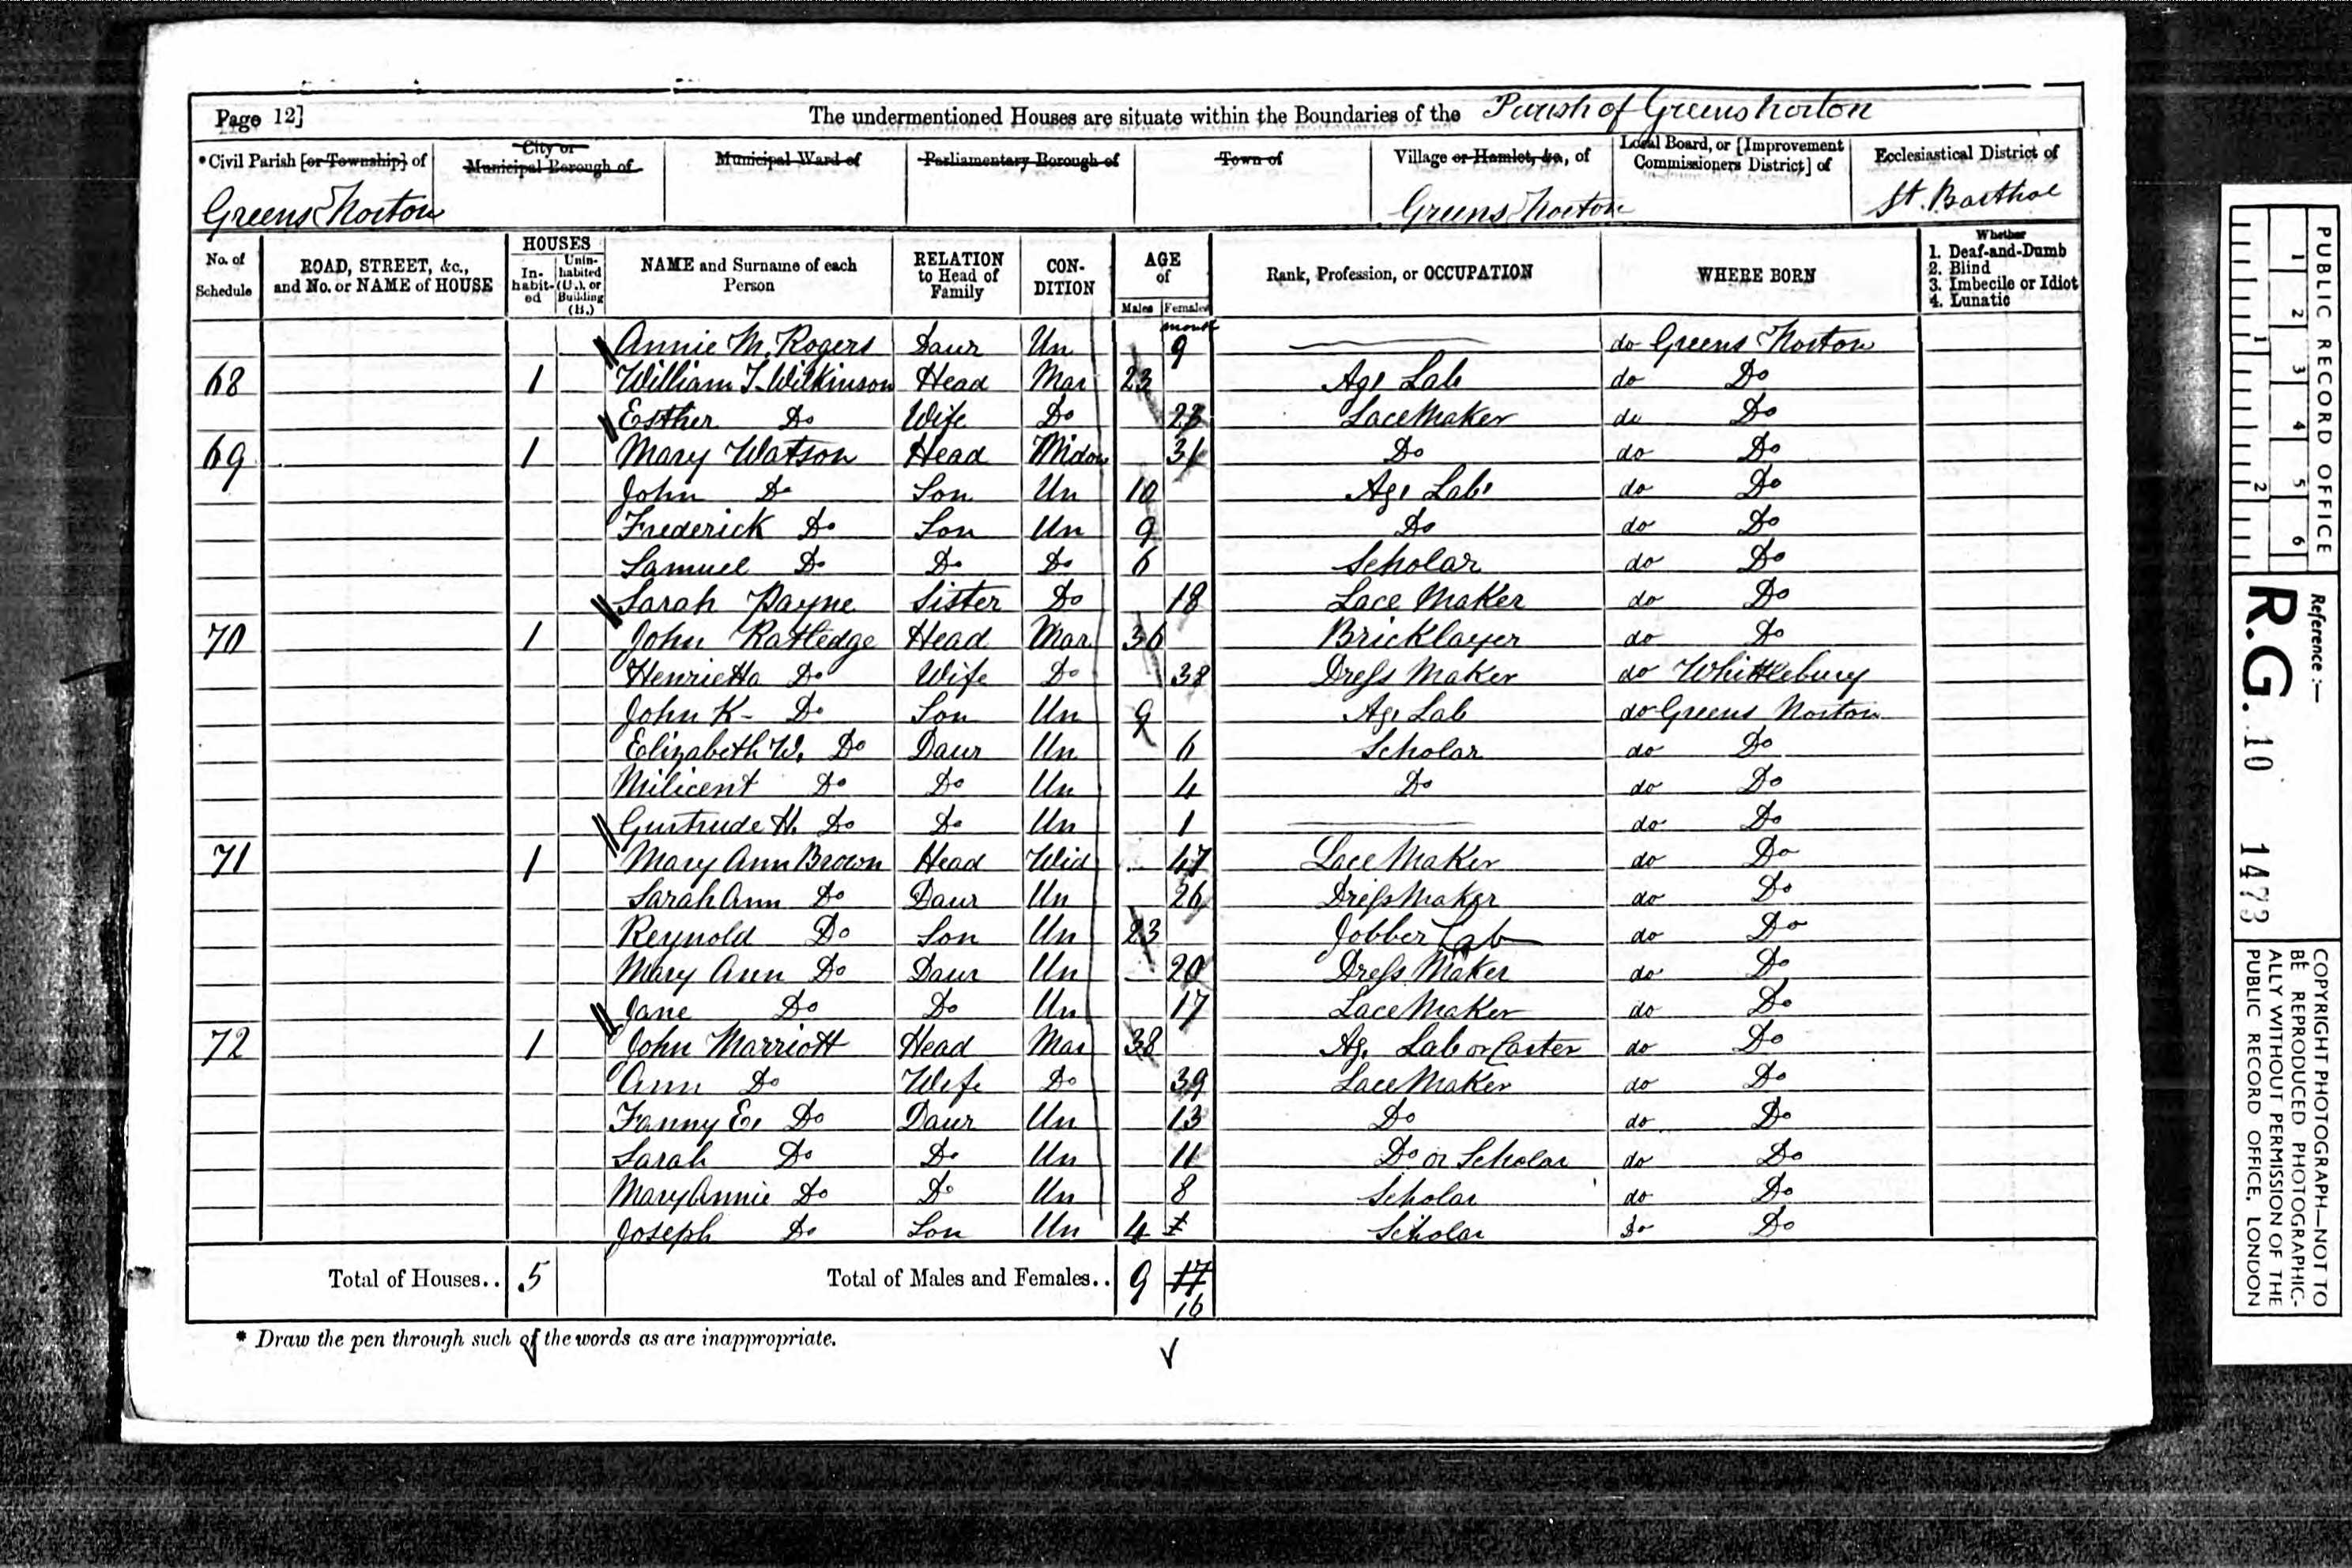 Page 12] The undermentioned Houses are situate within the Boundaries of the Parish of Greens Norton
*Civil Parish [or Township] of City or Municipal Borough of Municipal Ward of Parliamentary Borough of Town of Village or Hamlet, &c, of Local Board, or [Improvement Commissioners District] of Ecclesiastical District of
Greens Norton Greens Norton St. Barthol
No. of Schedule ROAD, STREET, &c., and No. or NAME of HOUSE HOUSES Inhabited Uninhabited (U.), or Building (B.) NAME and Surname of each Person RELATION to Head of Family CONDITION AGE of Males Females Rank, Profession, or OCCUPATION WHERE BORN Whether 1. Deaf-and-Dumb 2. Blind 3. Imbecile or Idiot 4. Lunatic
Annie M. Rogers Daur Un 9 month do Greens Norton
68 1 William T. Wilkinson Head Mar 23 Ag. Lab do Do
Esther Do Wife Do 23 Lace Maker do Do
69 1 Mary Watson Head Widow 31 Do do Do
John Do Son Un 10 Ag. Lab. do Do
Frederick Do Son Un 9 Do do Do
Samuel Do Do Do 6 Scholar do Do
Sarah Payne Sister Do 18 Lace Maker do Do
70 1 John Ratledge Head Mar 36 Bricklayer do Do
Henrietta Do Wife Do 38 Dress Maker do Whittlebury
John K- Do Son Un 9 Ag. Lab do Greens Norton
Elizabeth W. Do Daur Un 6 Scholar do Do
Milicent Do Do Un 4 Do do Do
Gertrude H. Do Do Un 1 do Do
71 1 Mary Ann Brown Head Wid 47 Lace Maker do Do
Sarah Ann Do Daur Un 26 Dress Maker do Do
Reynold Do Son Un 23 Jobber Lab do Do
Mary Ann Do Daur Un 20 Dress Maker do Do
Jane Do Do Un 17 Lace Maker do Do
72 1 John Marriott Head Mar 38 Ag. Lab or Carter do Do
Ann Do Wife Do 39 Lace Maker do Do
Fanny E. Do Daur Un 13 Do do Do
Sarah Do Do Un 11 Do or Scholar do Do
Mary Annie Do Do Un 8 Scholar do Do
Joseph Do Son Un 4 Scholar Do Do
Total of Houses.. 5 Total of Males and Females.. 9 17
16
* Draw the pen through such of the words as are inappropriate.
PUBLIC RECORD OFFICE
1 2 3 4 5 6
1 2
Reference :—
R.G. 10 1473
COPYRIGHT PHOTOGRAPH—NOT TO
BE REPRODUCED PHOTOGRAPHIC-
ALLY WITHOUT PERMISSION OF THE
PUBLIC RECORD OFFICE, LONDON